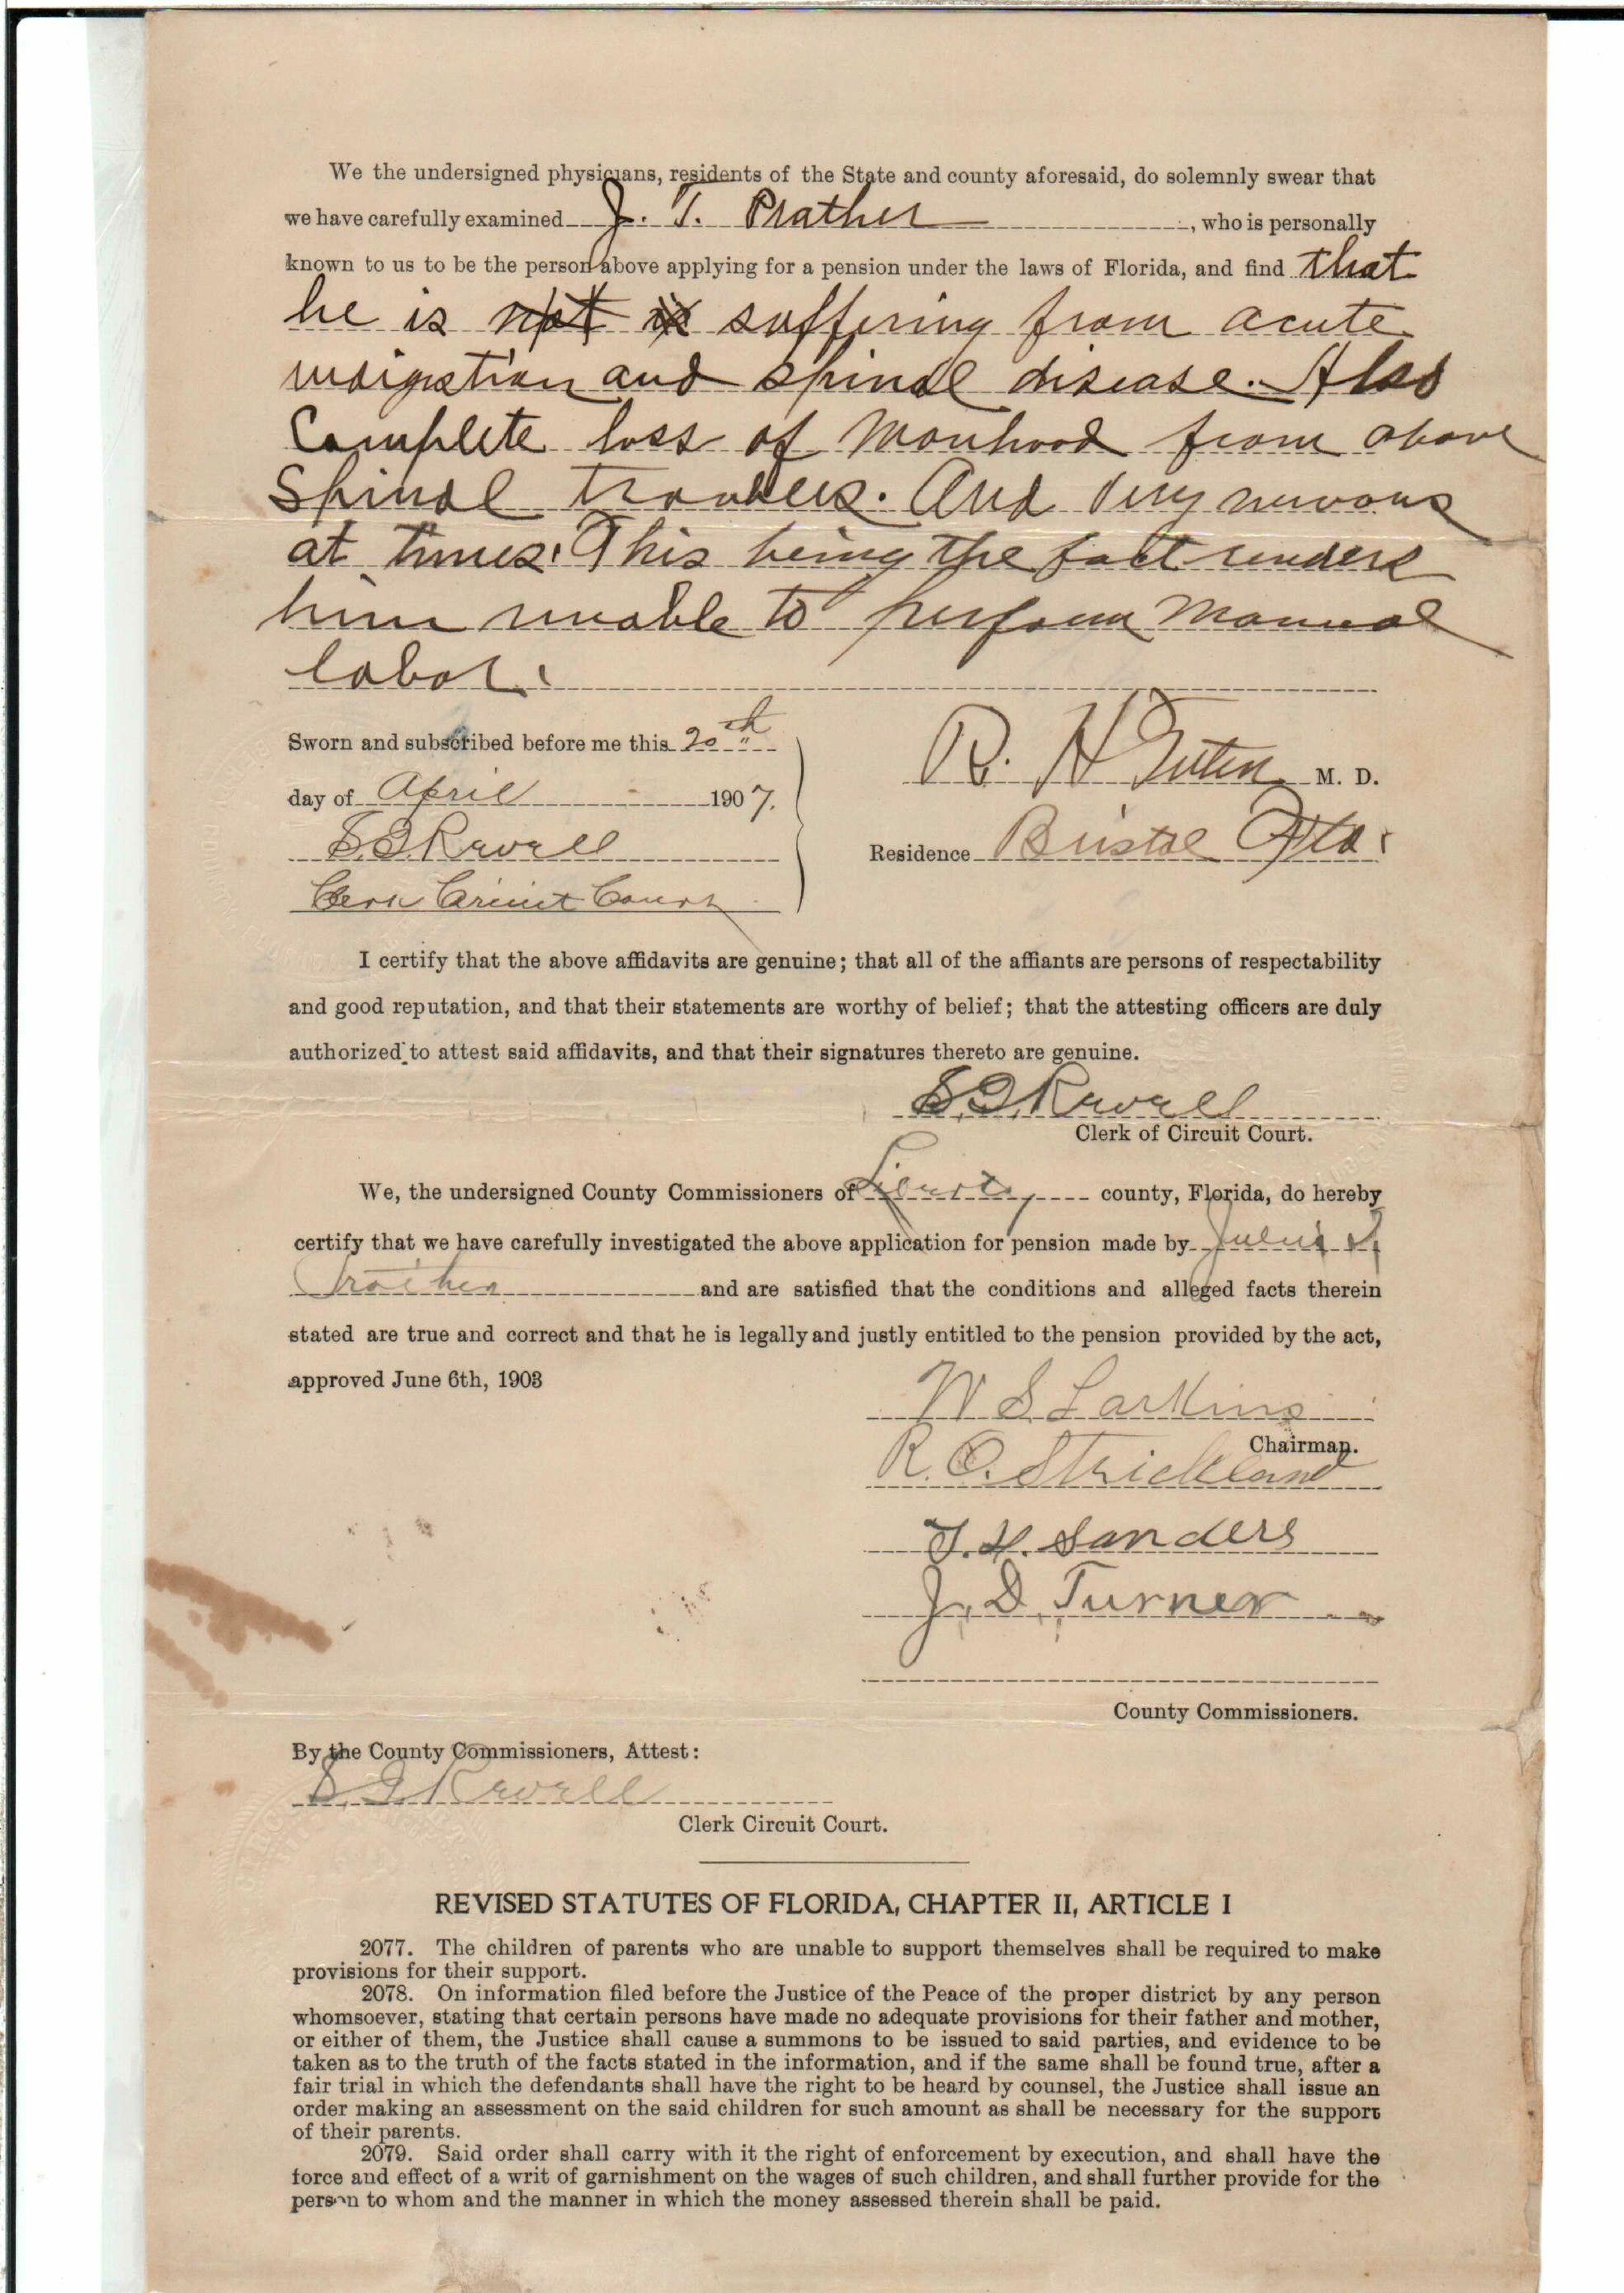 We the undersigned physicians, residents of the State and county aforesaid, do solemnly swear that
we have carefully examined J. T. Prather, who is personally
known to us to be the person above applying for a pension under the laws of Florida, and find that
he is not is suffering from acute
indigestion and spinal disease. Also
Complete loss of Manhood from above
Spinal troubles. And very nervous
at times. This being the fact renders
him unable to perform Manual
labor.
Sworn and subscribed before me this 20th
day of April 1907.
R. H. Tuten M. D.
Residence Bristol Fla.
Revell
Clerk Circuit Court
I certify that the above affidavits are genuine; that all of the affiants are persons of respectability
and good reputation, and that their statements are worthy of belief; that the attesting officers are duly
authorized to attest said affidavits, and that their signatures thereto are genuine.
Revell
Clerk of Circuit Court.
We, the undersigned County Commissioners of Liberty county, Florida, do hereby
certify that we have carefully investigated the above application for pension made by Julius T.
Prather and are satisfied that the conditions and alleged facts therein
stated are true and correct and that he is legally and justly entitled to the pension provided by the act,
approved June 6th, 1903
W S Larkins
Chairman.
R. O. Strickland
T. H. Sanders
J. D. Turner
County Commissioners.
By the County Commissioners, Attest:
Revell
Clerk Circuit Court.
REVISED STATUTES OF FLORIDA, CHAPTER II, ARTICLE I
2077. The children of parents who are unable to support themselves shall be required to make
provisions for their support.
2078. On information filed before the Justice of the Peace of the proper district by any person
whomsoever, stating that certain persons have made no adequate provisions for their father and mother,
or either of them, the Justice shall cause a summons to be issued to said parties, and evidence to be
taken as to the truth of the facts stated in the information, and if the same shall be found true, after a
fair trial in which the defendants shall have the right to be heard by counsel, the Justice shall issue an
order making an assessment on the said children for such amount as shall be necessary for the support
of their parents.
2079. Said order shall carry with it the right of enforcement by execution, and shall have the
force and effect of a writ of garnishment on the wages of such children, and shall further provide for the
person to whom and the manner in which the money assessed therein shall be paid.